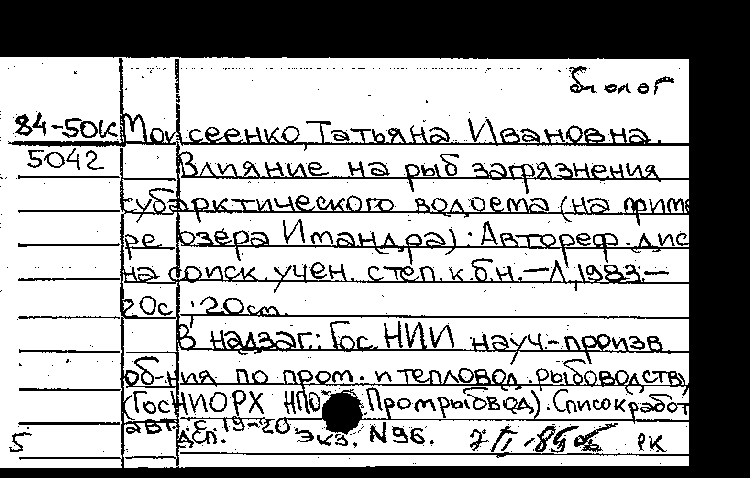 биолог
84-50К Моисеенко, Татьяна Ивановна.
5042 Влияние на рыб загрязнения
субарктического водоема (на приме
ре озера Имандра): Автореф. дис
на соиск. учен. степ. к.б.н. — Л, 1983. —
20с ; 20см.
В надзаг.: Гос. НИИ науч-произв
об-ния по пром. и тепловод. рыбоводству
(ГосНИОРХ НПО Промрыбвод). Список работ
авт. с. 19-20.
5 ДСП. Экз. N96.
РК